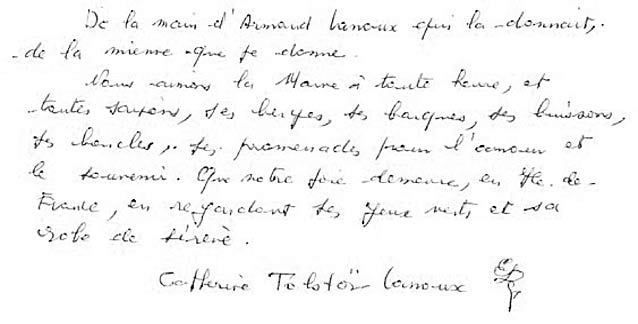 De la main d'Armand Lanoux qui la donnait,
de la mienne que je donne.
Nous aimons la Marne à toute heure, et
toutes saisons, ses berges, ses barques, ses buissons,
ses boucles, ses promenades pour l'amour et
le souvenir. Que notre joie demeure, en Ile-de-
France, en regardant ses yeux verts et sa
robe de sirène.
Catherine Tolstoï Lanoux